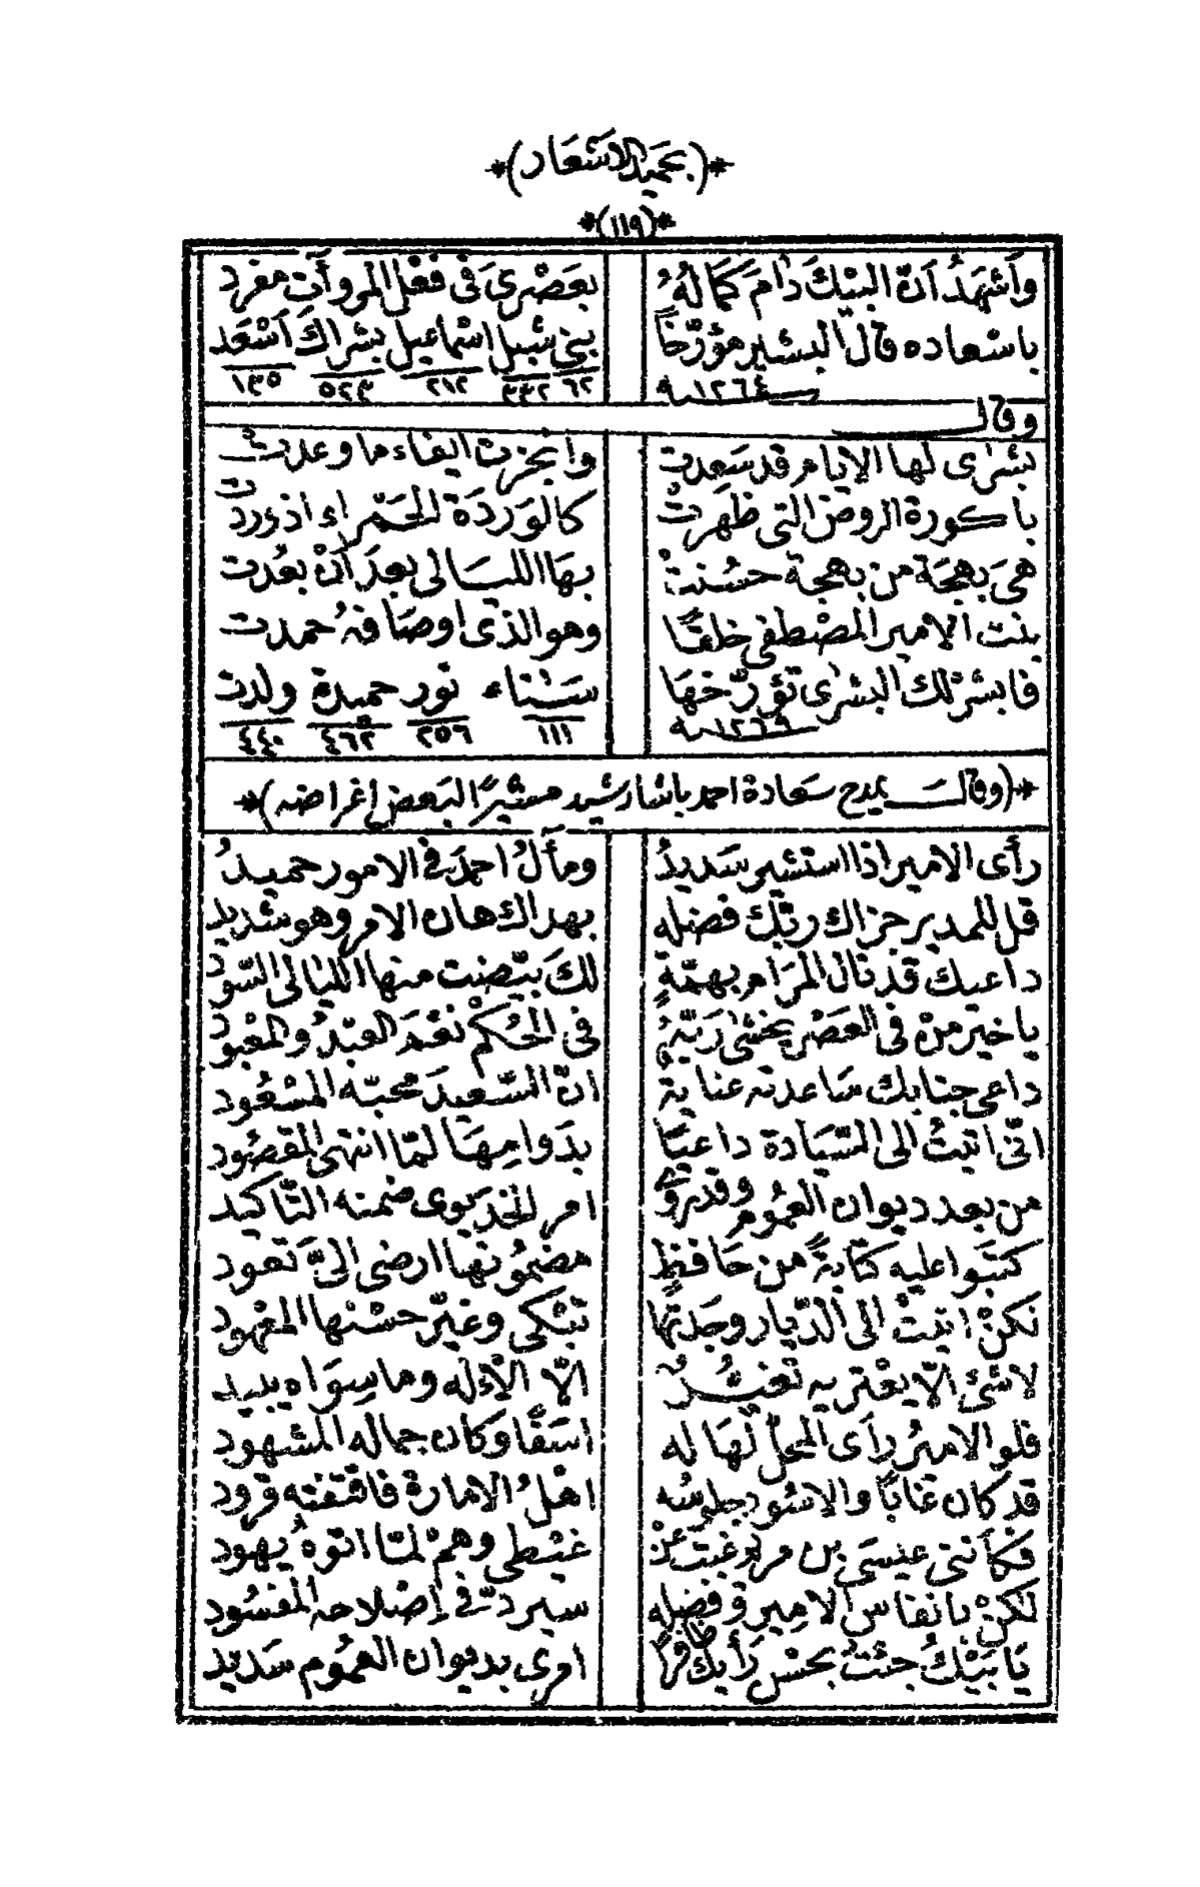 *(بحميد الاشعار)*
*(١١٩)*
وأشهد أنّ البيك دام كماله بعصري في فعل المروآت مفرد
باسعاده قال البشير مؤرّخاً بني شبيل اسماعيل بشراك أسعد
١٢٦٤ سنة ٦٢ ٣٣٢ ٢١٢ ٥٢٣ ١٣٥
وقال
بشرى لها الايام قد سعدت وانجزت ايفاء ما وعدت
باكورة الروض التي ظهرت كالوردة الحمراء اذ وردت
هي بهجة من بهجة حسنت بها الليالي بعد أن بعدت
بنت الامير المصطفى خلقاً وهو الذي اوصافه حمدت
فابشر لك البشرى تؤرّخها سناء نور حميدة ولدت
١٢٦٩ سنة ١١١ ٢٥٦ ٤٦٢ ٤٤٠
*(وقال يمدح سعادة احمد باشا رشيد مشيراً لبعض اغراضه)*
رأى الامير اذا استشير سديد ومآل احمد في الامور حميد
قل للمدير جزاك ربّك فضله بهداك هان الامر وهو شديد
داعيك قد نال المرام بهمّة لك بيّضت منها الليالي السّود
يا خير من في العصر يخشى ربّه في الحكم نعم العبد والمعبود
داعي جنابك ساعدته عناية انّ السّعيد محبّه المسعود
انّي اتيت الى السّيادة داعياً بدوامها لمّا انتهى المقصود
من بعد ديوان العموم وقدروا امر الخديوى ضمنه التّأكيد
كتبوا عليه كتابةً من حافظ مضمونها ارضى اليّ تعود
لكن اتيت الى الدّيار وجدتها تبكى وغيّر حسنها المعهود
لا شئ الّا يعتريه تغيّر الّا الإله وما سواه يبيد
فلو الامير رأى المحلّ لها له اسفاً وكان جماله المشهود
قد كان غاباً والاسود جلوسه اهل الامارة فاقتفته قرود
فكأنني عيسى بن مريم غبت عن غيطى وهم لمّا اتوه يهود
لكن بانفاس الامير وفضله سيردّ في إصلاحه المفسود
يا بيك جئت بحسن رأيك ظافراً امرى بديوان العموم سديد